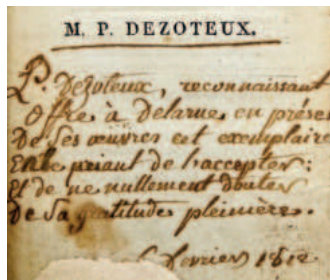 M. P. DEZOTEUX.
P. Dezoteux, reconnaissant
Offre à Delarue en prése
De ses œuvres cet exemplaire
En le priant de l'accepter:
Et de ne nullement douter
De Sa gratitude pleinière.
fevrier 1812